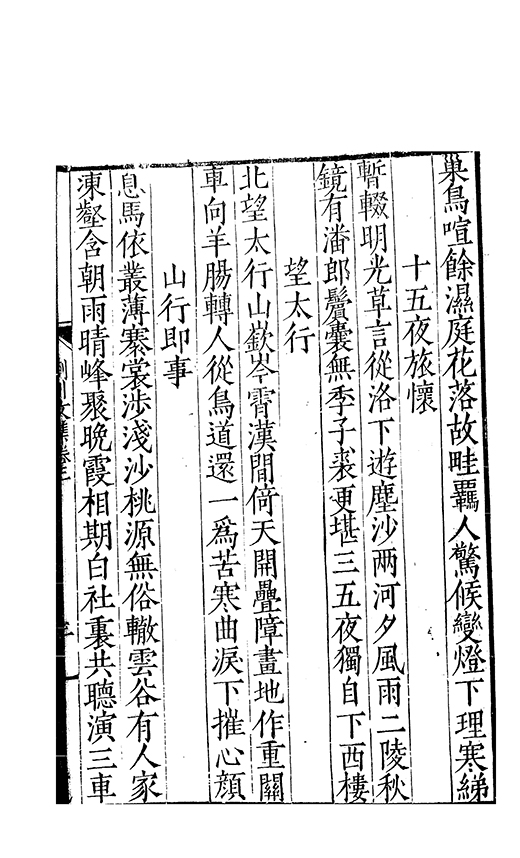 巢鳥喧餘濕庭花落故畦覊人驚候變燈下理寒綈
十五夜旅懷
暫輟明光草言從洛下遊塵沙兩河夕風雨二陵秋
鏡有潘郎鬢囊無季子裘更堪三五夜獨自下西樓
望太行
北望太行山嶔岑霄漢間倚天開疊障畫地作重關
車向羊腸轉人從鳥道還一爲苦寒曲淚下摧心顏
山行即事
息馬依叢薄褰裳涉淺沙桃源無俗轍雲谷有人家
涷壑含朝雨晴峰聚晩霞相期白社裏共聽演三車